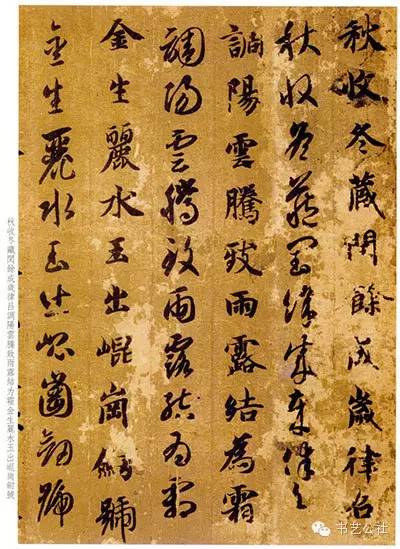 秋收冬藏閏餘成歲律召
秋收冬藏閏餘成歲律召
調陽雲騰致雨露結為霜
調陽雲騰致雨露結為霜
金生麗水玉出崐崗劍號
金生麗水玉出崐崗劍號
秋收冬藏閏餘成歲律吕調陽雲騰致雨露結为霜金生麗水玉出崐崗劍號
书艺公社